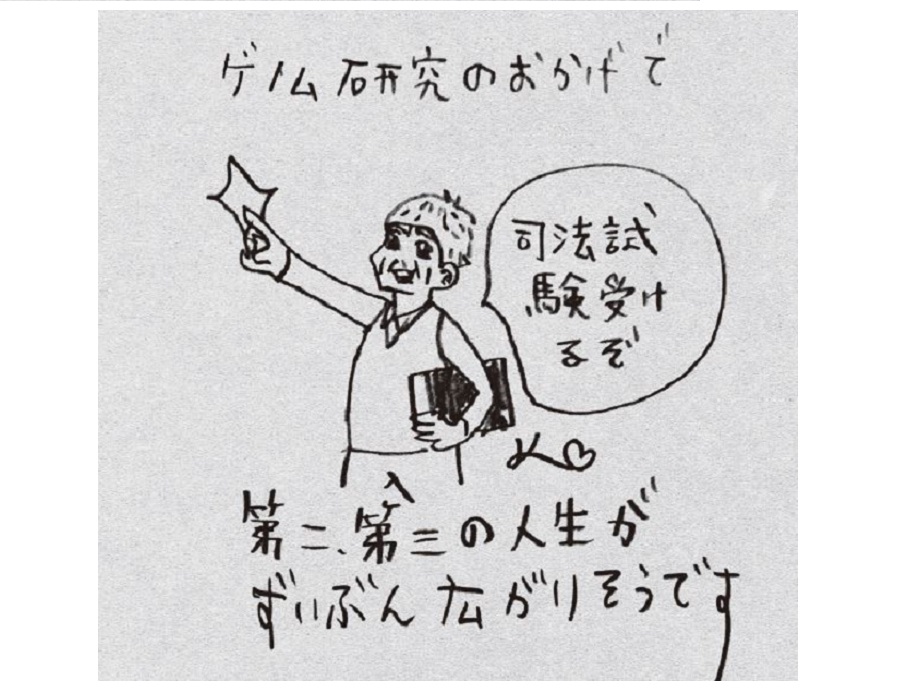 ゲノム研究のおかげで
司法試
験受け
るぞ
第二、第三の人生が
ずいぶん広がりそうです